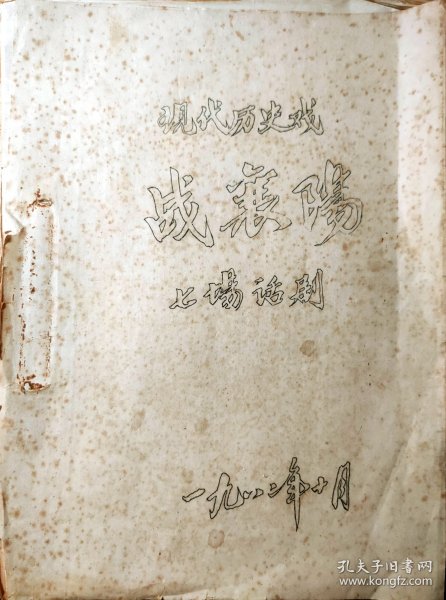 现代历史戏
战襄陽
七場话剧
一九八二年十月
孔夫子旧书网
www.kongfz.com